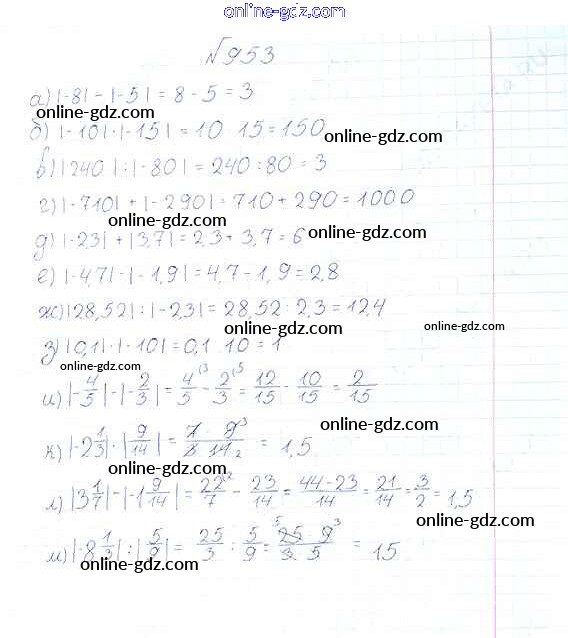 online-gdz.com
№953
а) |-8| - |-5| = 8 - 5 = 3
online-gdz.com
б) |-10| · |-15| = 10 · 15 = 150
online-gdz.com
в) |240| : |-80| = 240 : 80 = 3
online-gdz.com
г) |-710| + |-290| = 710 + 290 = 1000
online-gdz.com
д) |-2,3| + |3,7| = 2,3 + 3,7 = 6
online-gdz.com
е) |-4,7| - |-1,9| = 4,7 - 1,9 = 2,8
ж) |28,52| : |-2,3| = 28,52 : 2,3 = 12,4
online-gdz.com
online-gdz.com
з) |0,1| · |-10| = 0,1 · 10 = 1
online-gdz.com
и) |-4/5| - |-2/3| = 4/5 (3 - 2/3 (5 = 12/15 - 10/15 = 2/15
online-gdz.com
к) |-2 1/3| · |9/14| = 7 · 9 3 / 3 · 14 2 = 1,5
л) |3 1/7| - |-1 9/14| = 22/7 (2 - 23/14 = 44-23/14 = 21/14 = 3/2 = 1,5
online-gdz.com
online-gdz.com
м) |-8 1/3| : |5/9| = 25/3 : 5/9 = 5 25 · 9 3 / 3 · 5 = 15
online-gdz.com
online-gdz.com